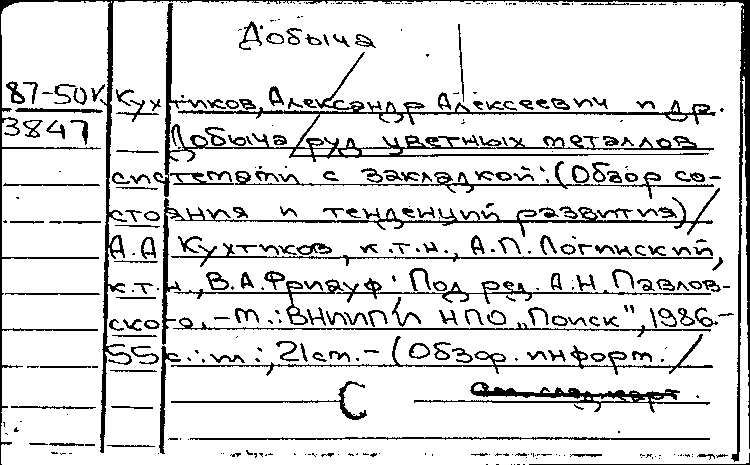 Добыча
87-50К Кухтиков, Александр Алексеевич и др.
3847 Добыча руд цветных металлов
системами с закладкой: (Обзор со-
стояния и тенденций развития) /
А.А Кухтиков, к.т.н., А.П. Логинский,
к.т.н., В.А. Фриауф; Под ред. А.Н. Павлов-
ского. - М.: ВНИИПИ НПО „Поиск", 1986.-
55 с.: ил.; 21 см. - (Обзор. информ. /
С
См. след. карт.